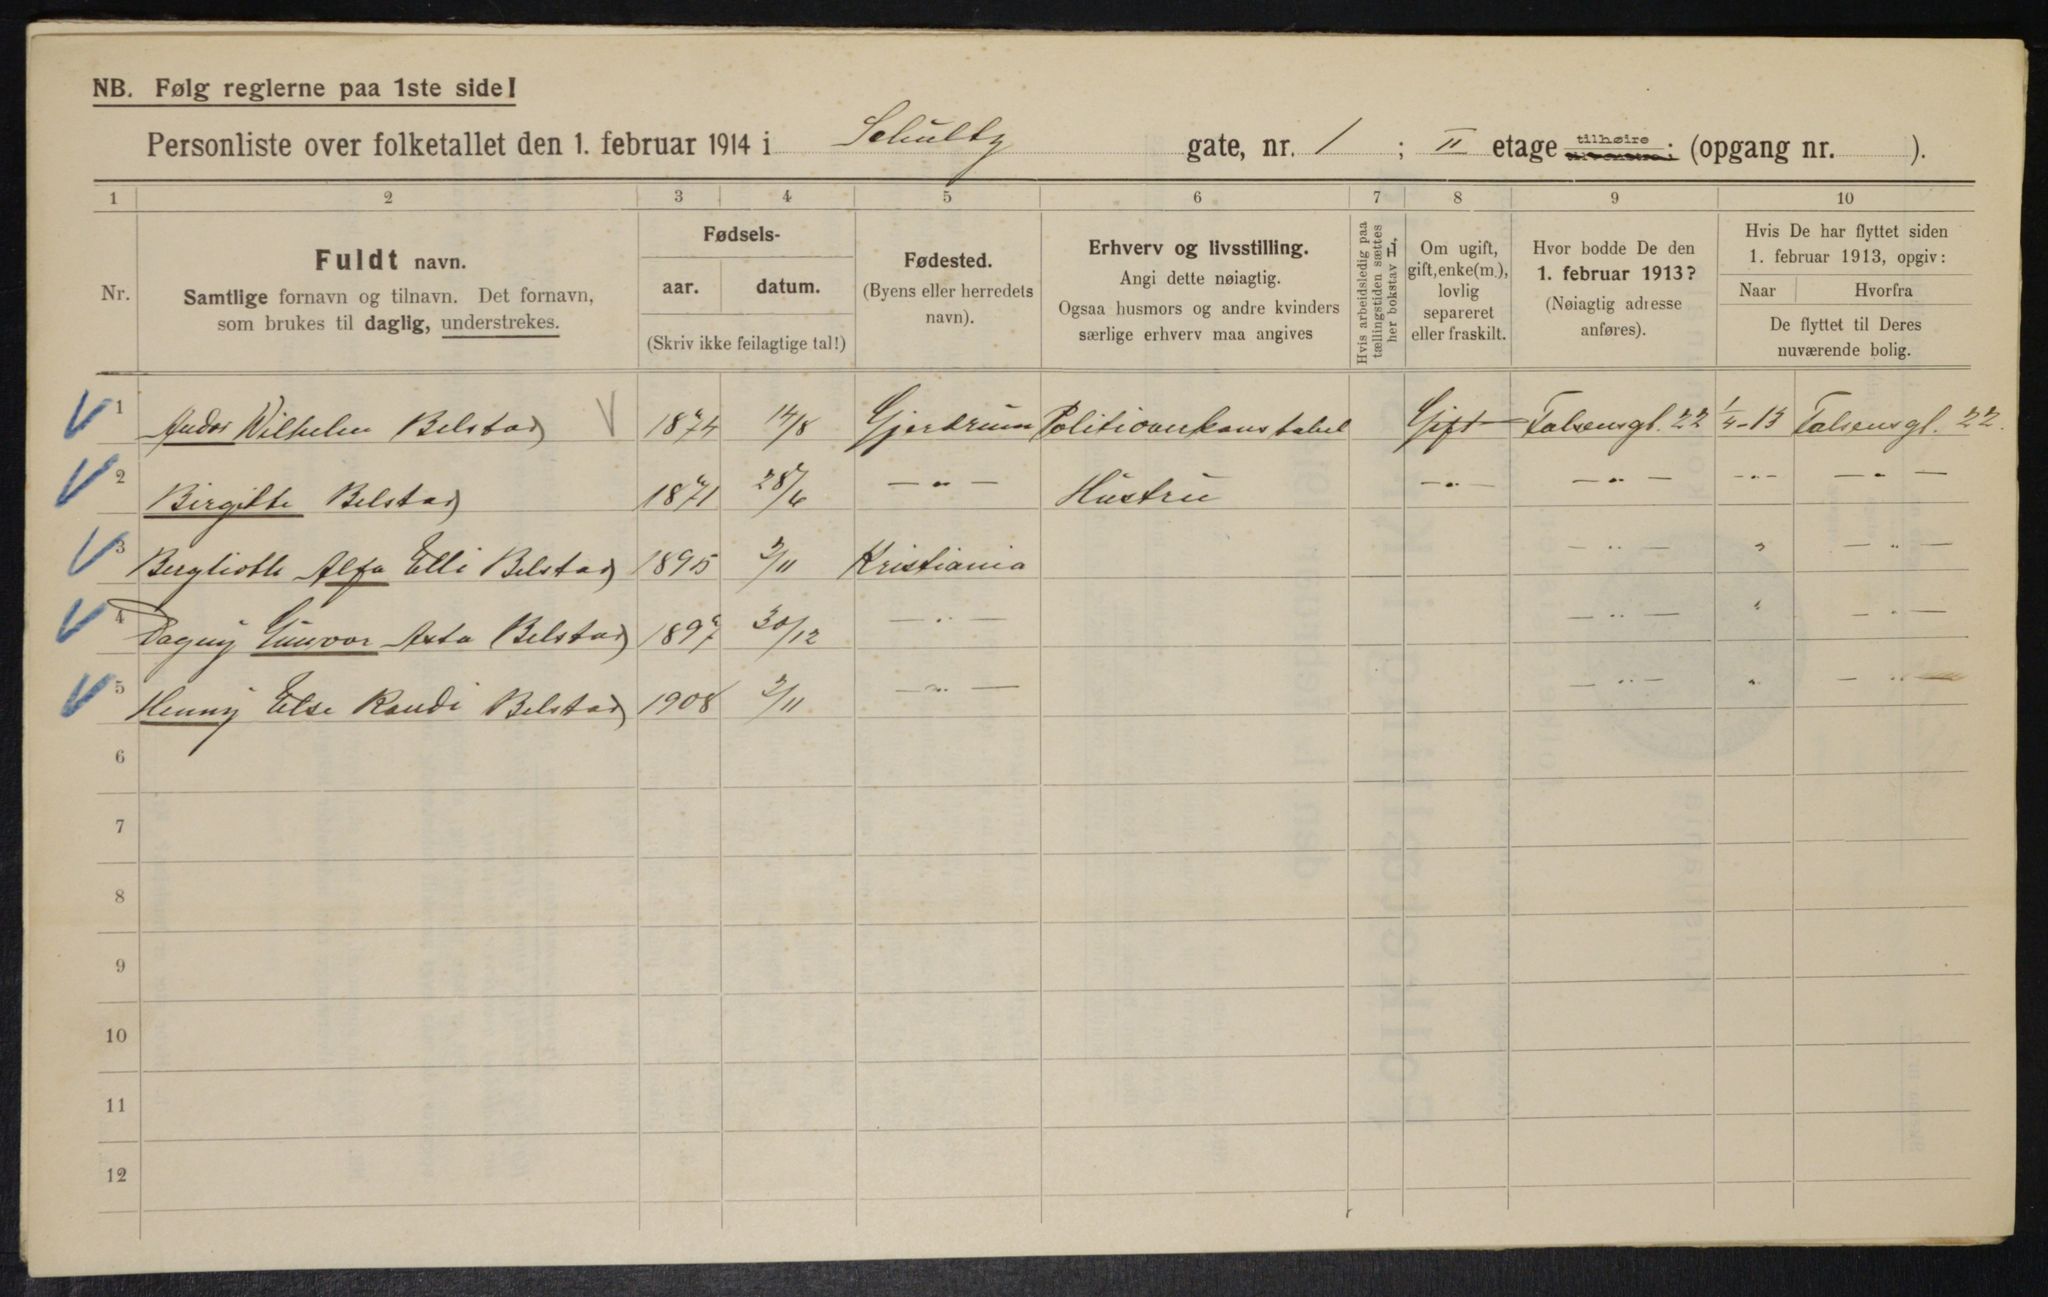 NB. Følg reglerne paa 1ste side!
Personliste over folketallet den 1. februar 1914 i Schultz gate, nr. 1 ; II etage tilhøire ; (opgang nr. ).
1 2 3 4 5 6 7 8 9 10
Nr.
Fuldt navn.
Samtlige fornavn og tilnavn. Det fornavn,
som brukes til daglig, understrekes.
Fødsels-
aar. datum.
(Skriv ikke feilagtige tal!)
Fødested.
(Byens eller herredets
navn).
Erhverv og livsstilling.
Angi dette nøiagtig.
Ogsaa husmors og andre kvinders
særlige erhverv maa angives
Hvis arbeidsledig paa
tællingstiden sættes
her bokstav L.
Om ugift,
gift, enke(m.),
lovlig
separeret
eller fraskilt.
Hvor bodde De den
1. februar 1913?
(Nøiagtig adresse
anføres).
Hvis De har flyttet siden
1. februar 1913, opgiv:
Naar Hvorfra
De flyttet til Deres
nuværende bolig.
1 Andor Wilhelm Belstad 1874 14/8 Gjerdrum Politioverkonstabel Gift Falsensgt. 22 1/4-13 Falsensgt. 22.
2 Birgitte Belstad 1871 28/6 — " — Hustru — " — — " — - " - — " —
3 Berglioth Alfa Elli Belstad 1895 2/11 Kristiania — " — " — " —
4 Dagny Gunvor Asta Belstad 1897 30/12 — " — — " — " — " —
5 Henny Else Randi Belstad 1908 2/11 — " — — " — " — " —
6
7
8
9
10
11
12